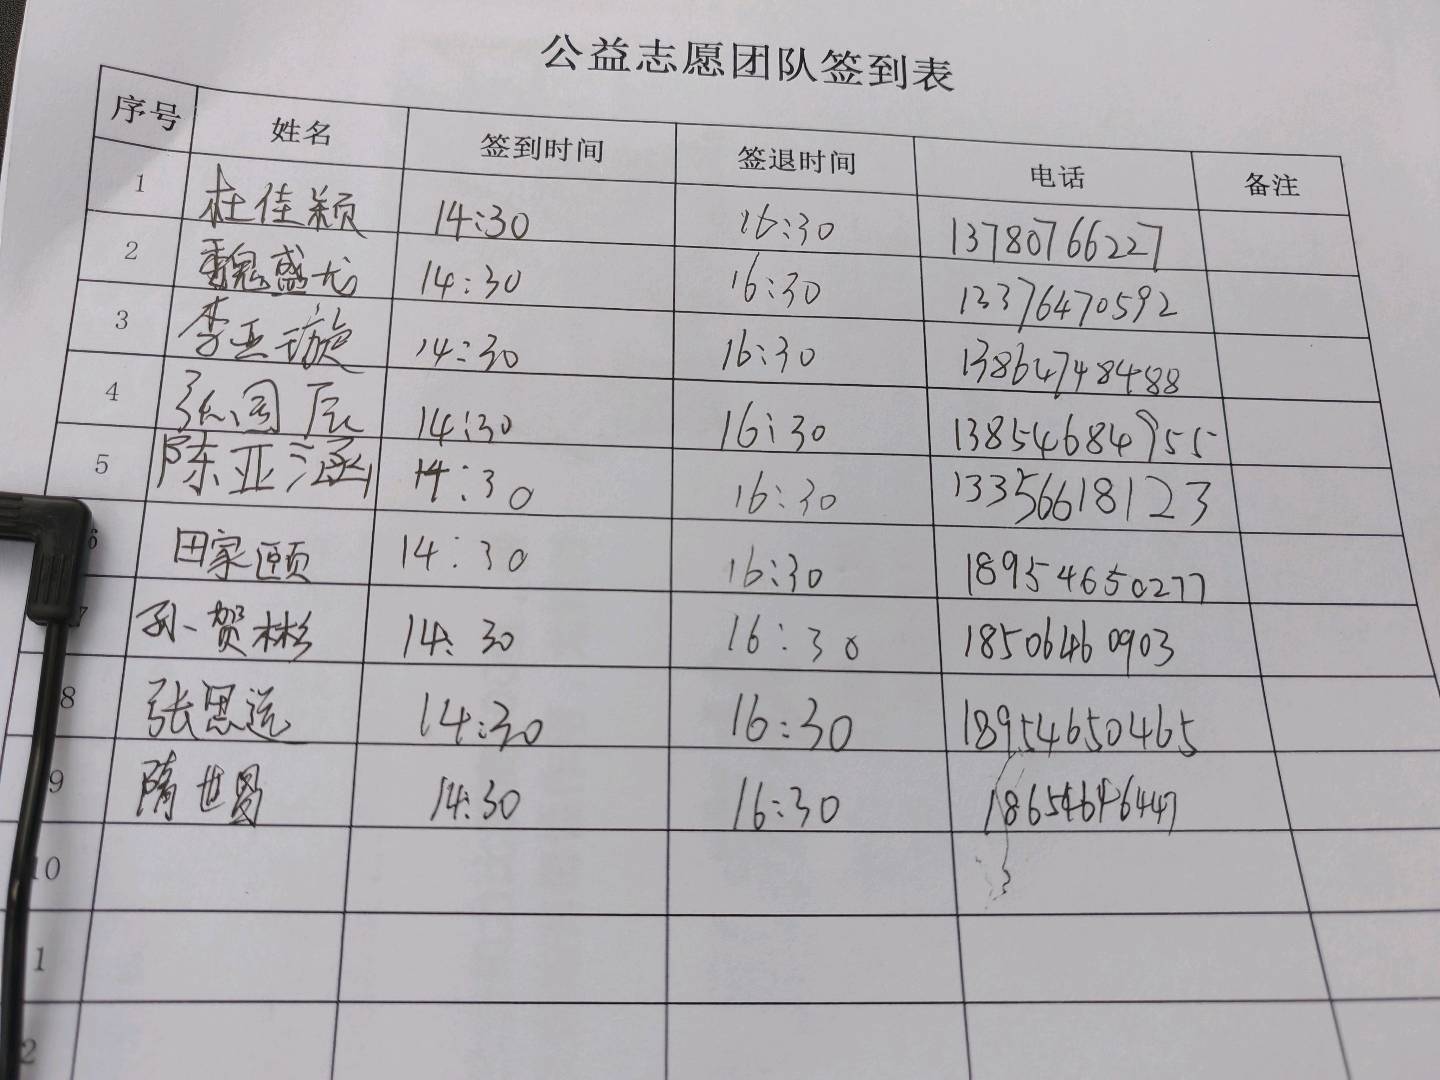 公益志愿团队签到表
序号 姓名 签到时间 签退时间 电话 备注
1 杜佳颖 14:30 16:30 13780766227
2 魏盛尤 14:30 16:30 13376470592
3 李亚璇 14:30 16:30 13864748488
4 张国辰 14:30 16:30 13854684955
5 陈亚涵 14:30 16:30 13356618123
6 田家颐 14:30 16:30 18954650277
7 孙贺彬 14:30 16:30 18506460903
8 张思远 14:30 16:30 18954650465
9 隋世 14:30 16:30
10
1
2